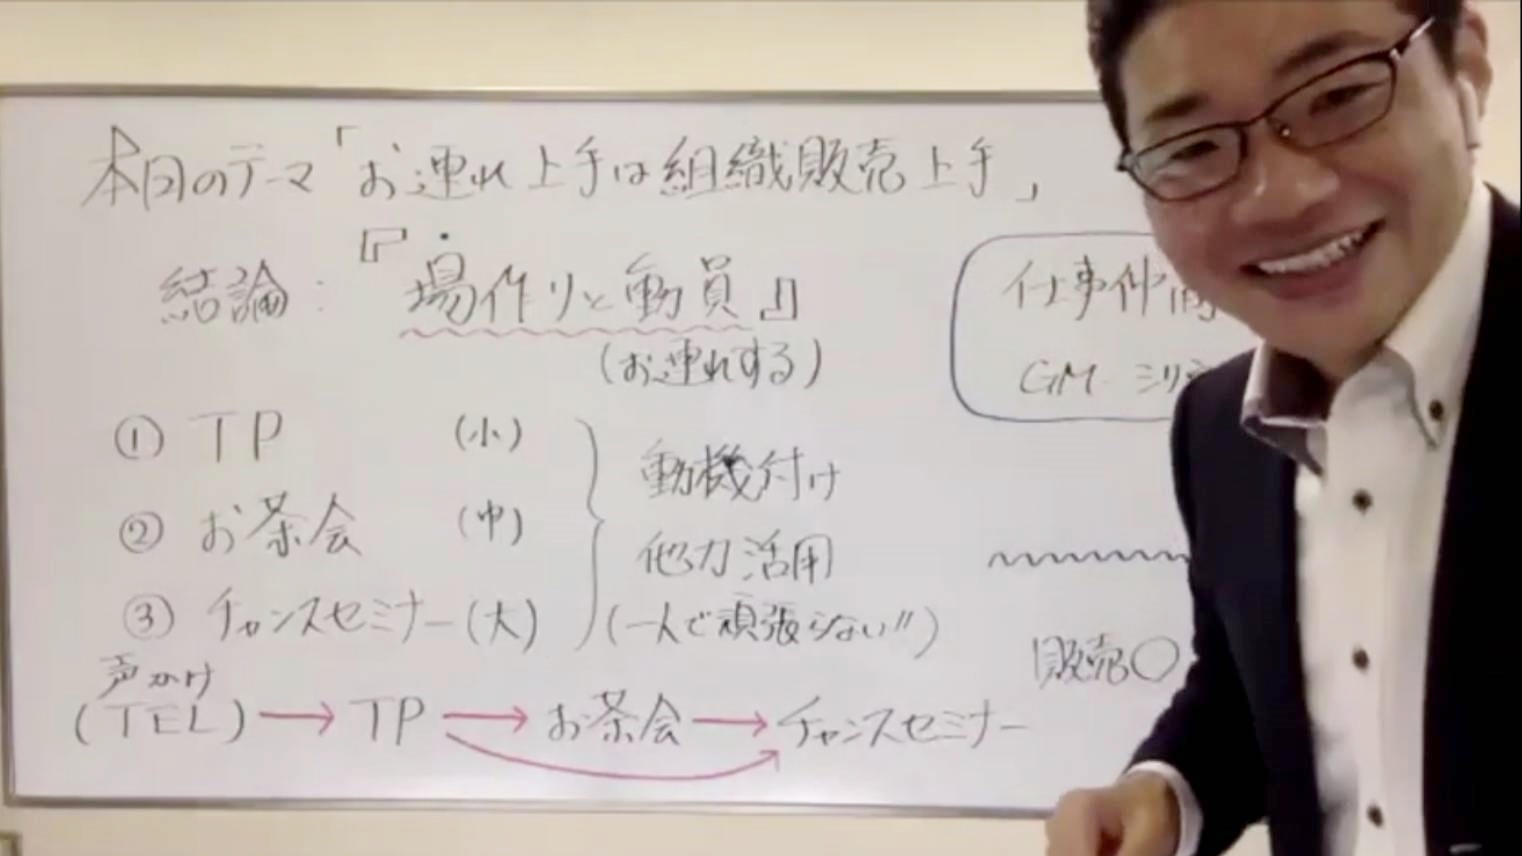 本日のテーマ「お連れ上手は組織販売上手」
結論:『場作りと動員』
(お連れする)
仕事仲間
GM ミリ
① TP (小)
② お茶会 (中)
③ チャンスセミナー (大)
動機付け
他力活用
(一人で頑張らない!!)
販売〇
声かけ
(TEL) → TP → お茶会 → チャンスセミナー